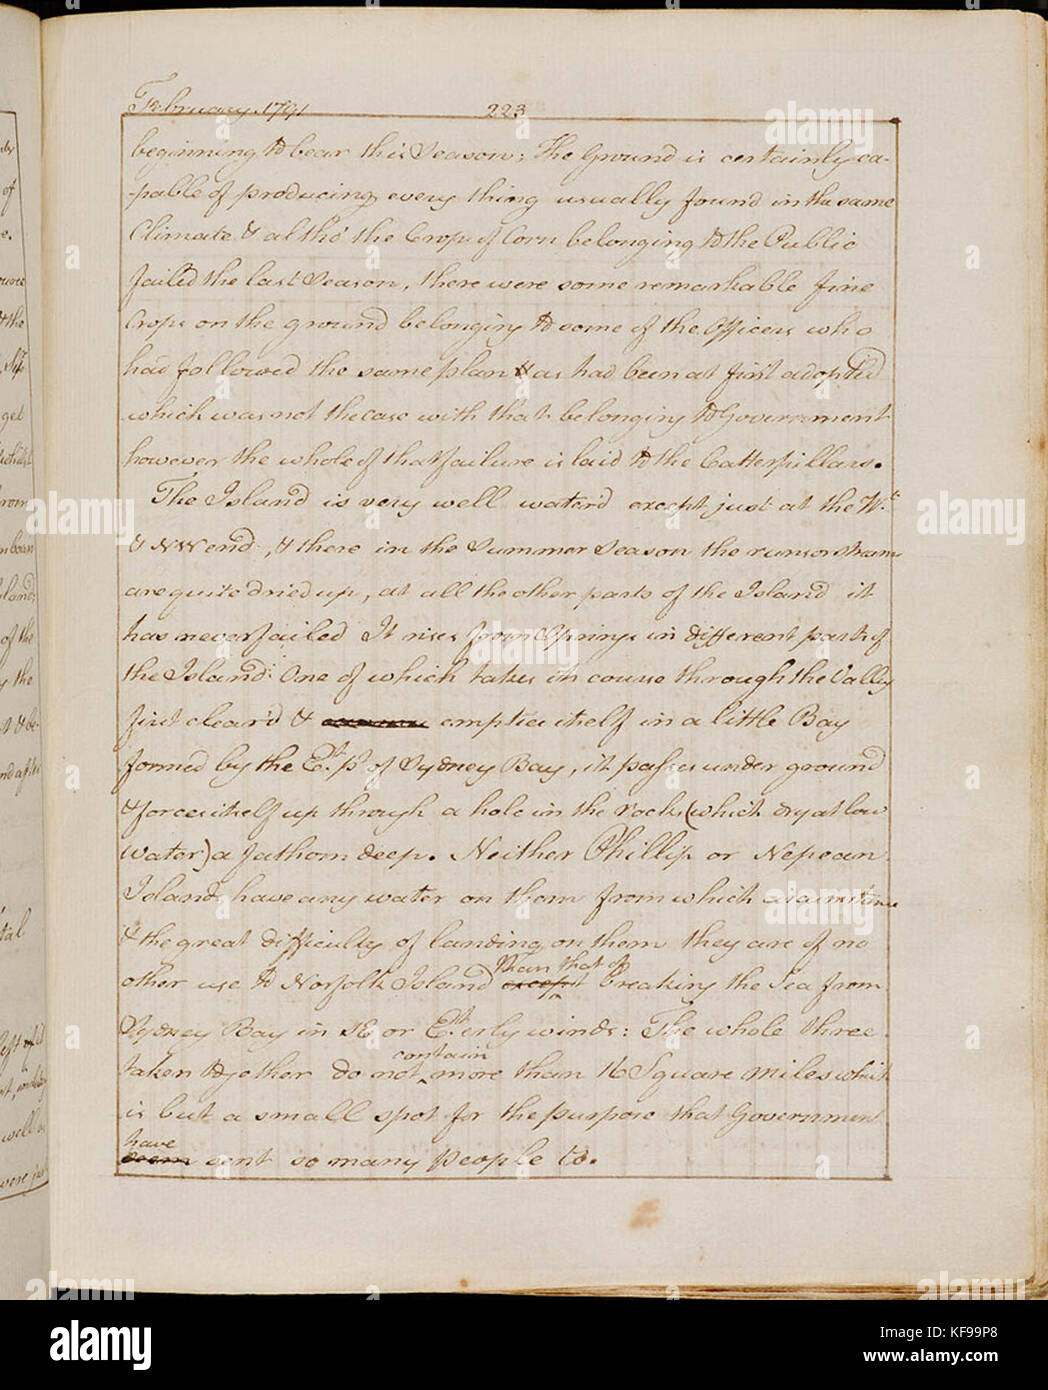 February 1791 223
beginning to bear this Season; The Ground is certainly ca-
-pable of producing every thing usually found in the same
Climate & altho' the Crops of Corn belonging to the Public
failed the last Season, there were some remarkable fine
Crops on the ground belonging to some of the Officers who
had followed the same plan as had been at first adopted
which was not the case with that belonging to Government
however the whole of that failure is laid to the Catterpillars.
The Island is very well water'd except just at the Wt.
& NW end, & there in the Summer Season the runs or stream
are quite dried up, at all the other parts of the Island it
has never failed It rises from Springs in different parts of
the Island: One of which takes its course through the Vally
first clear'd & empties itself in a little Bay
formed by the Et. pt. of Sydney Bay, it passes under ground
& forces itself up through a hole in the rocks (which dry at low
Water) a fathom deep. Neither Phillip or Nepean
Island, have any water on them from which circumstance
& the great difficulty of landing on them they are of no
other use to Norfolk Island than that of except breaking the Sea from
Sydney Bay in SE or Et.erly winds: The whole three
taken together do not contain more than 16 Square miles which
is but a small spot for the purpose that Government
have seem sent so many people to.
alamy
KF99P8
www.alamy.com